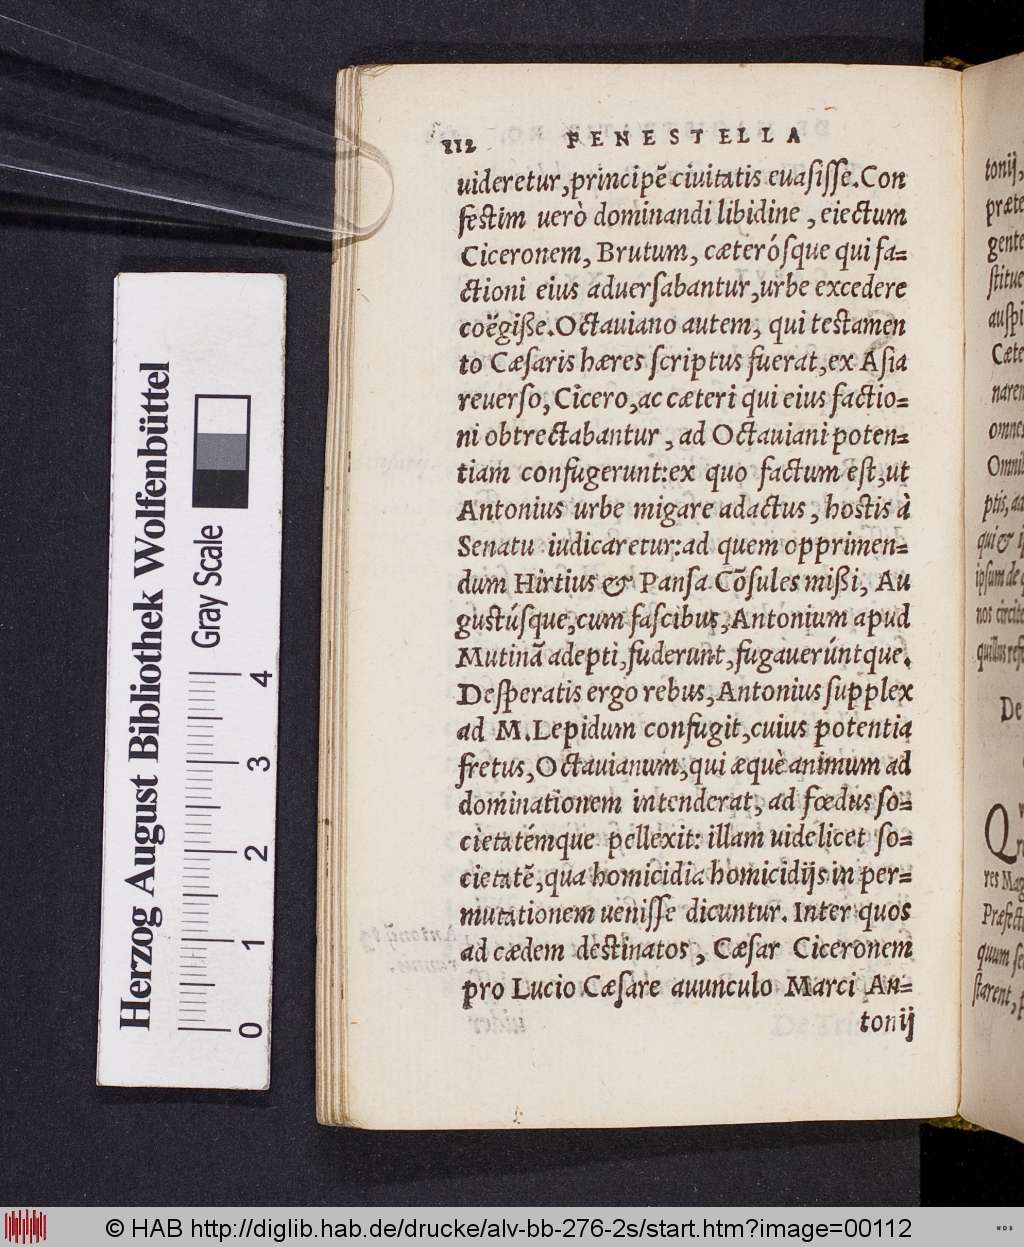 112 FENESTELLA
uideretur, principē ciuitatis euasisse. Con
festim uerò dominandi libidine, eiectum
Ciceronem, Brutum, cæterósque qui fa-
ctioni eius aduersabantur, urbe excedere
coëgiße. Octauiano autem, qui testamen
to Cæsaris hæres scriptus fuerat, ex Asia
reuerso, Cicero, ac cæteri qui eius factio-
ni obtrectabantur, ad Octauiani poten-
tiam confugerunt: ex quo factum est, ut
Antonius urbe migare adactus, hostis à
Senatu iudicaretur: ad quem opprimen-
dum Hirtius & Pansa Cōsules mißi, Au
gustúsque, cum fascibus, Antonium apud
Mutinā adepti, fuderunt, fugauerúntque.
Desperatis ergo rebus, Antonius supplex
ad M. Lepidum confugit, cuius potentia
fretus, Octauianum, qui æquè animum ad
dominationem intenderat, ad fœdus so-
cietatémque pellexit: illam uidelicet so-
cietatē, qua homicidia homicidijs in per-
mutationem uenisse dicuntur. Inter quos
ad cædem destinatos, Cæsar Ciceronem
pro Lucio Cæsare auunculo Marci An-
tonij
tonij,
præte
gente
stitue
auspi
Cæte
naren
omne
Omni
ptis, ad
qui & i
ipsum de
nos circit
quillus rest
De
Q
res Mag
Præfecti
quum se
starent,
Herzog August Bibliothek Wolfenbüttel
Gray Scale
0 1 2 3 4
© HAB http://diglib.hab.de/drucke/alv-bb-276-2s/start.htm?image=00112